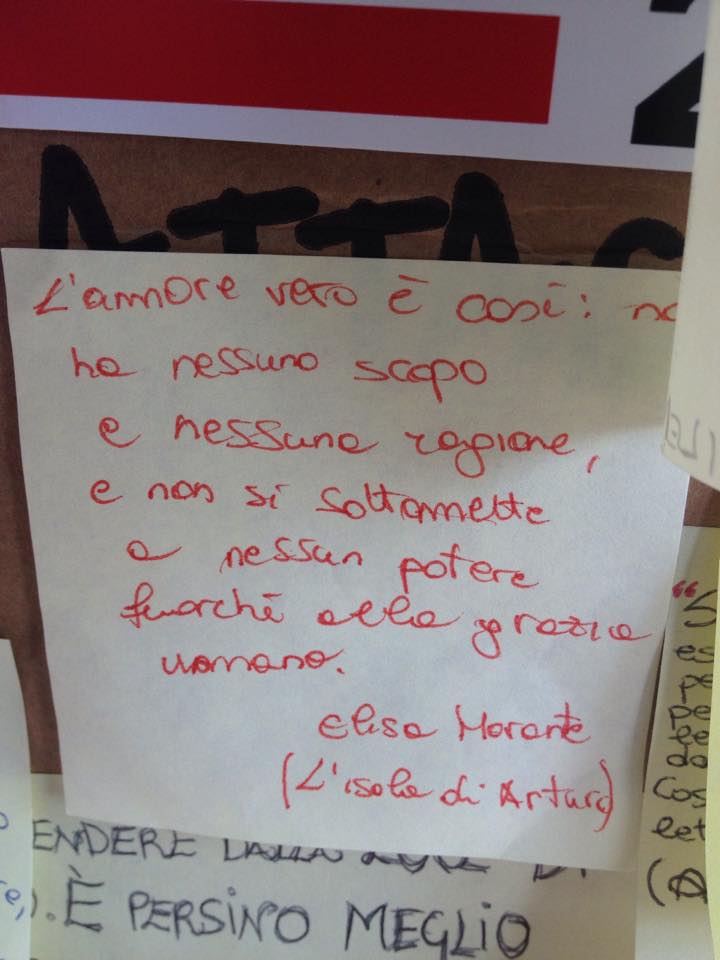 2
ATTAC
L'amore vero è così: no
ha nessuno scopo
e nessuna ragione,
e non si sottomette
a nessun potere
fuorché alla grazia
umana.
Elsa Morante
(L'isola di Arturo)
"S
es
pe
cos
(
ENDERE DALLA DI
e,). È PERSINO MEGLIO